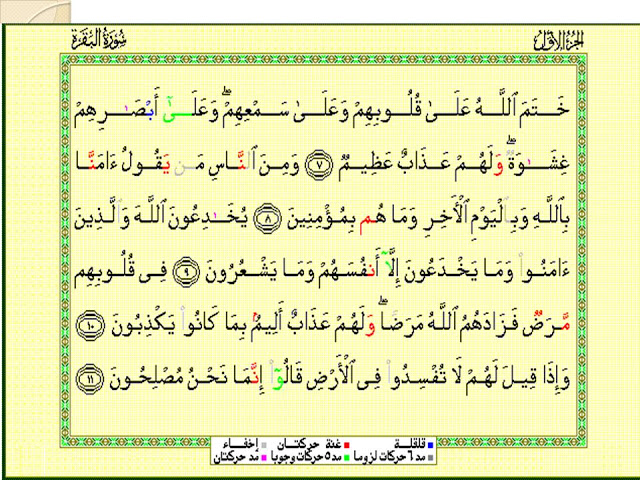 الجزء الأول
سورة البقرة
خَـتَمَ ٱللَّـهُ عَلَـىٰ قُلُـوبِهِمْ وَعَلَـىٰ سَـمْعِهِمْ ۖ وَعَلَـىٰٓ أَبْصَـٰرِهِمْ
غِشَـٰوَةٌ ۖ وَلَهُـمْ عَـذَابٌ عَظِيـمٌ ٧ وَمِـنَ ٱلنَّـاسِ مَـن يَقُـولُ ءَامَنَّـا
بِٱللَّـهِ وَبِٱلْيَوْمِ ٱلْأَخِـرِ وَمَا هُـم بِمُؤْمِنِينَ ٨ يُخَـٰدِعُونَ ٱللَّـهَ وَٱلَّذِينَ
ءَامَنُـوا۟ وَمَـا يَخْـدَعُونَ إِلَّآ أَنفُسَـهُمْ وَمَـا يَشْـعُرُونَ ٩ فِـى قُلُـوبِهِم
مَّـرَضٌ فَـزَادَهُمُ ٱللَّـهُ مَرَضًـا ۖ وَلَهُمْ عَذَابٌ أَلِيمٌۢ بِمَا كَانُوا۟ يَكْذِبُونَ ١٠
وَإِذَا قِيـلَ لَهُـمْ لَا تُفْسِـدُوا۟ فِى ٱلْأَرْضِ قَالُـوٓا۟ إِنَّمَا نَحْـنُ مُصْلِحُـونَ ١١
قلقلـة غنة حركتـان إخفـاء
مد ٦ حركات لزوما مد٥ حركات وجوبا مد حركتان